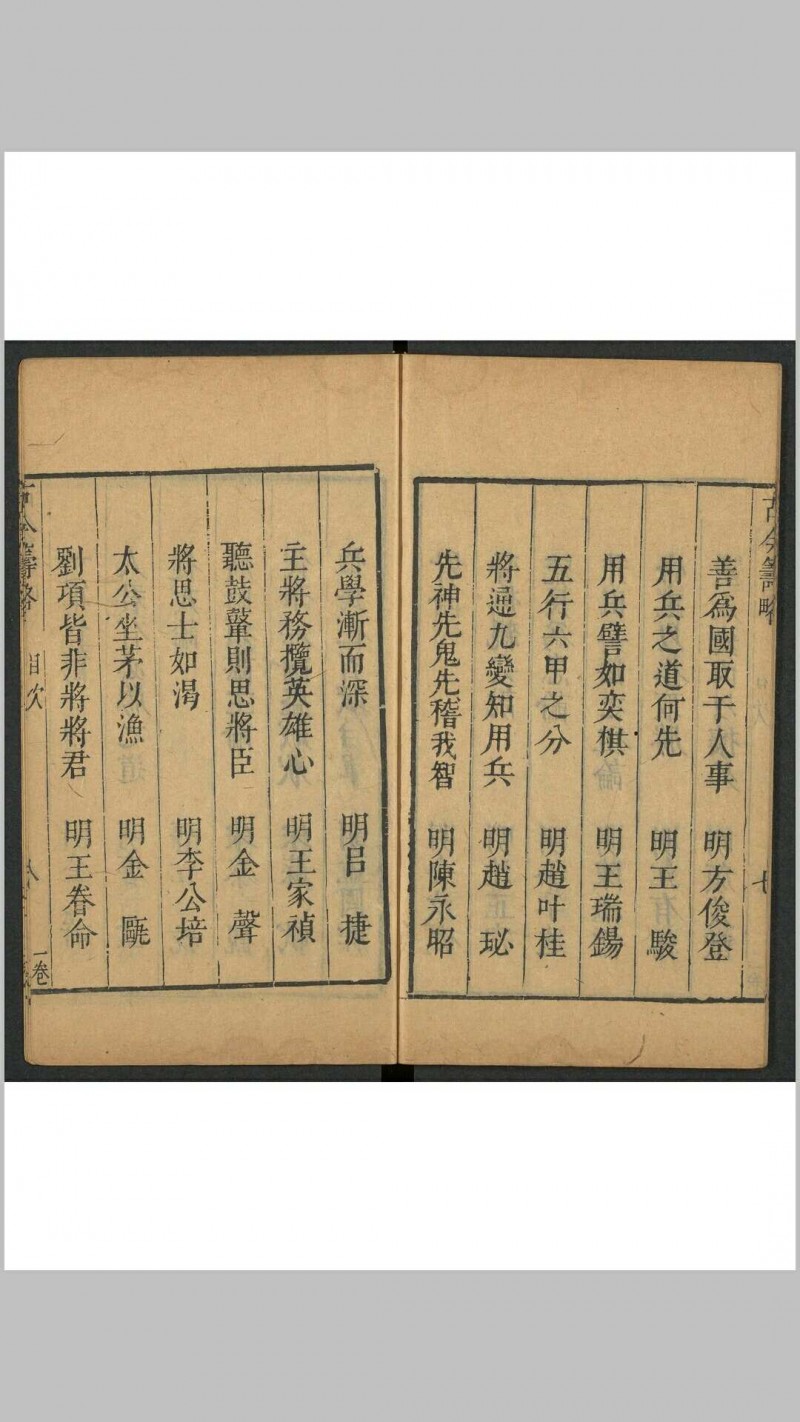 古今籌略
七
善爲國取于人事 明方俊登
用兵之道何先 明王有駿
用兵譬如奕棋 明王瑞鍚
五行六甲之分 明趙叶桂
將通九變知用兵 明趙 珌
先神先鬼先稽我智 明陳永昭
兵學漸而深 明吕 捷
主將務攬英雄心 明王家禎
聽鼓鼙則思將臣 明金 聲
將思士如渴 明李公培
太公坐茅以漁 明金 甌
劉項皆非將將君 明王眷命
古今籌略 目次 八 一卷